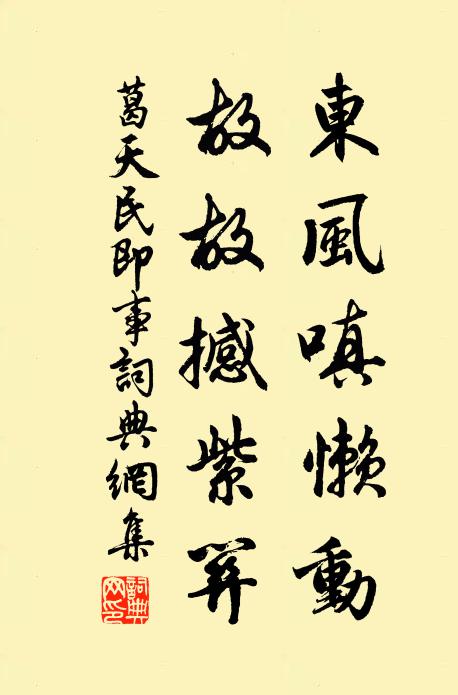 東風嗔懶動
故故撼柴關
葛天民即事詞典網集
詞典
网印